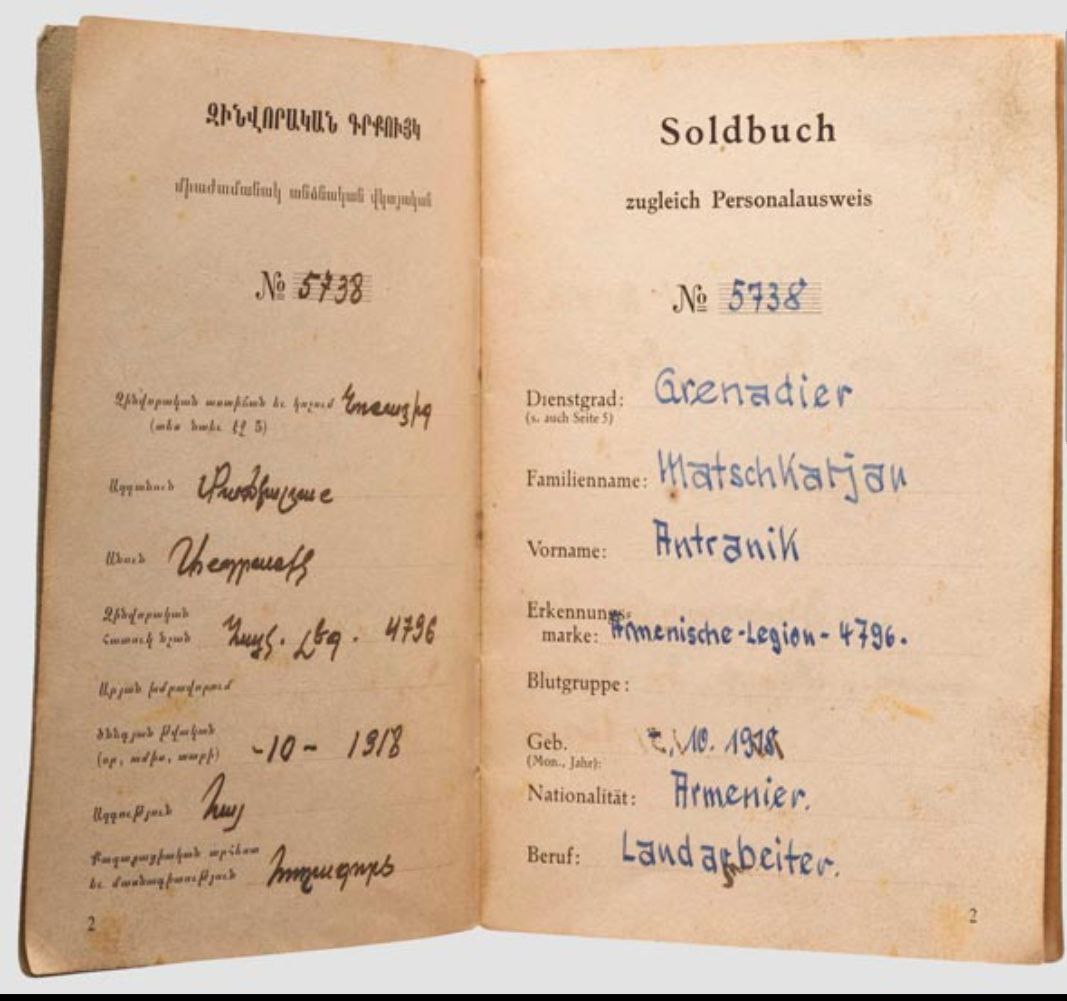 ԶԻՆՎՈՐԱԿԱՆ ԳՐՔՈՒՅԿ
միաժամանակ անձնական վկայական
№ 5738
Զինվորական աստիճան եւ կոչում
(տես նաեւ էջ 5)
Ազգանուն
Անուն Անդրանիկ
Զինվորական
Հատուկ նշան Հայկ. Լեգ. 4796
Արյան խմբավորում
Ծննդյան Թվական
(օր, ամիս, տարի) -10- 1918
Ազգություն Հայ
Քաղաքացիական արհեստ
եւ մասնագիտություն հողագործ
2
Soldbuch
zugleich Personalausweis
№ 5738
Dienstgrad: Grenadier
(s. auch Seite 5)
Familienname: Matschkarjan
Vorname: Antranik
Erkennungs-
marke: Armenische-Legion-4796.
Blutgruppe:
Geb. 10. 1918
(Mon., Jahr):
Nationalität: Armenier.
Beruf: Landarbeiter.
2